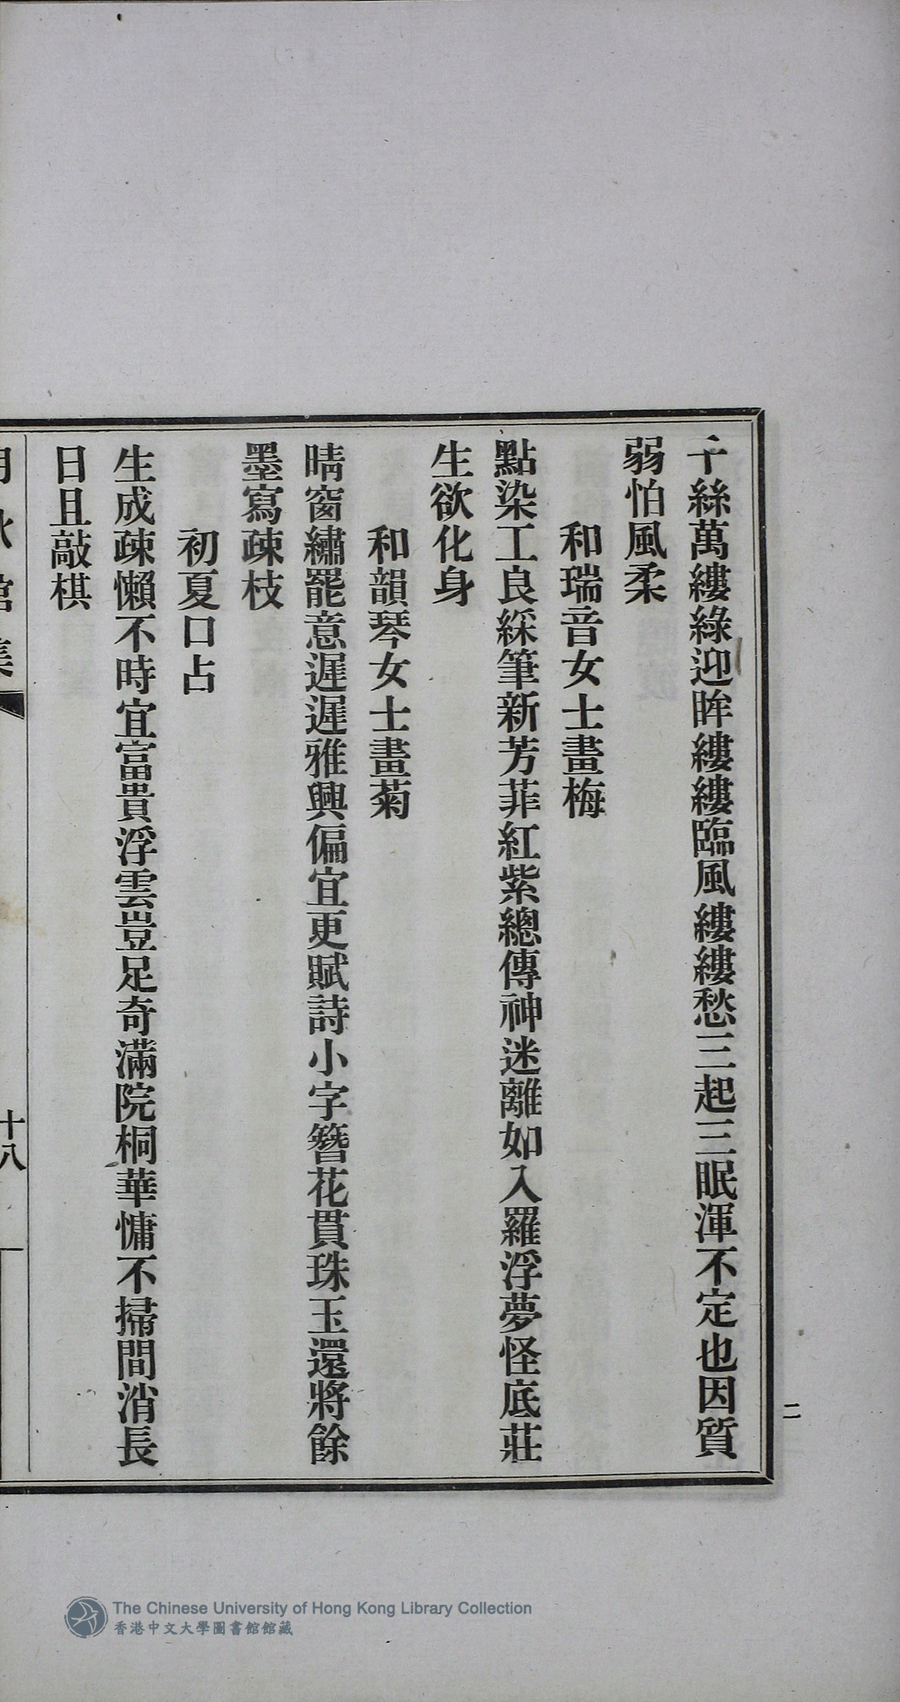 千絲萬縷綠迎眸縷縷臨風縷縷愁三起三眠渾不定也因質
弱怕風柔
和瑞音女士畫梅
點染工良綵筆新芳菲紅紫總傳神迷離如入羅浮夢怪底莊
生欲化身
和韻琴女士畫菊
晴窗繡罷意遲遲雅興偏宜更賦詩小字簪花貫珠玉還將餘
墨寫疎枝
初夏口占
生成疎懶不時宜富貴浮雲豈足奇滿院桐華慵不掃間消長
日且敲棋
十八
二
The Chinese University of Hong Kong Library Collection
香港中文大學圖書館館藏